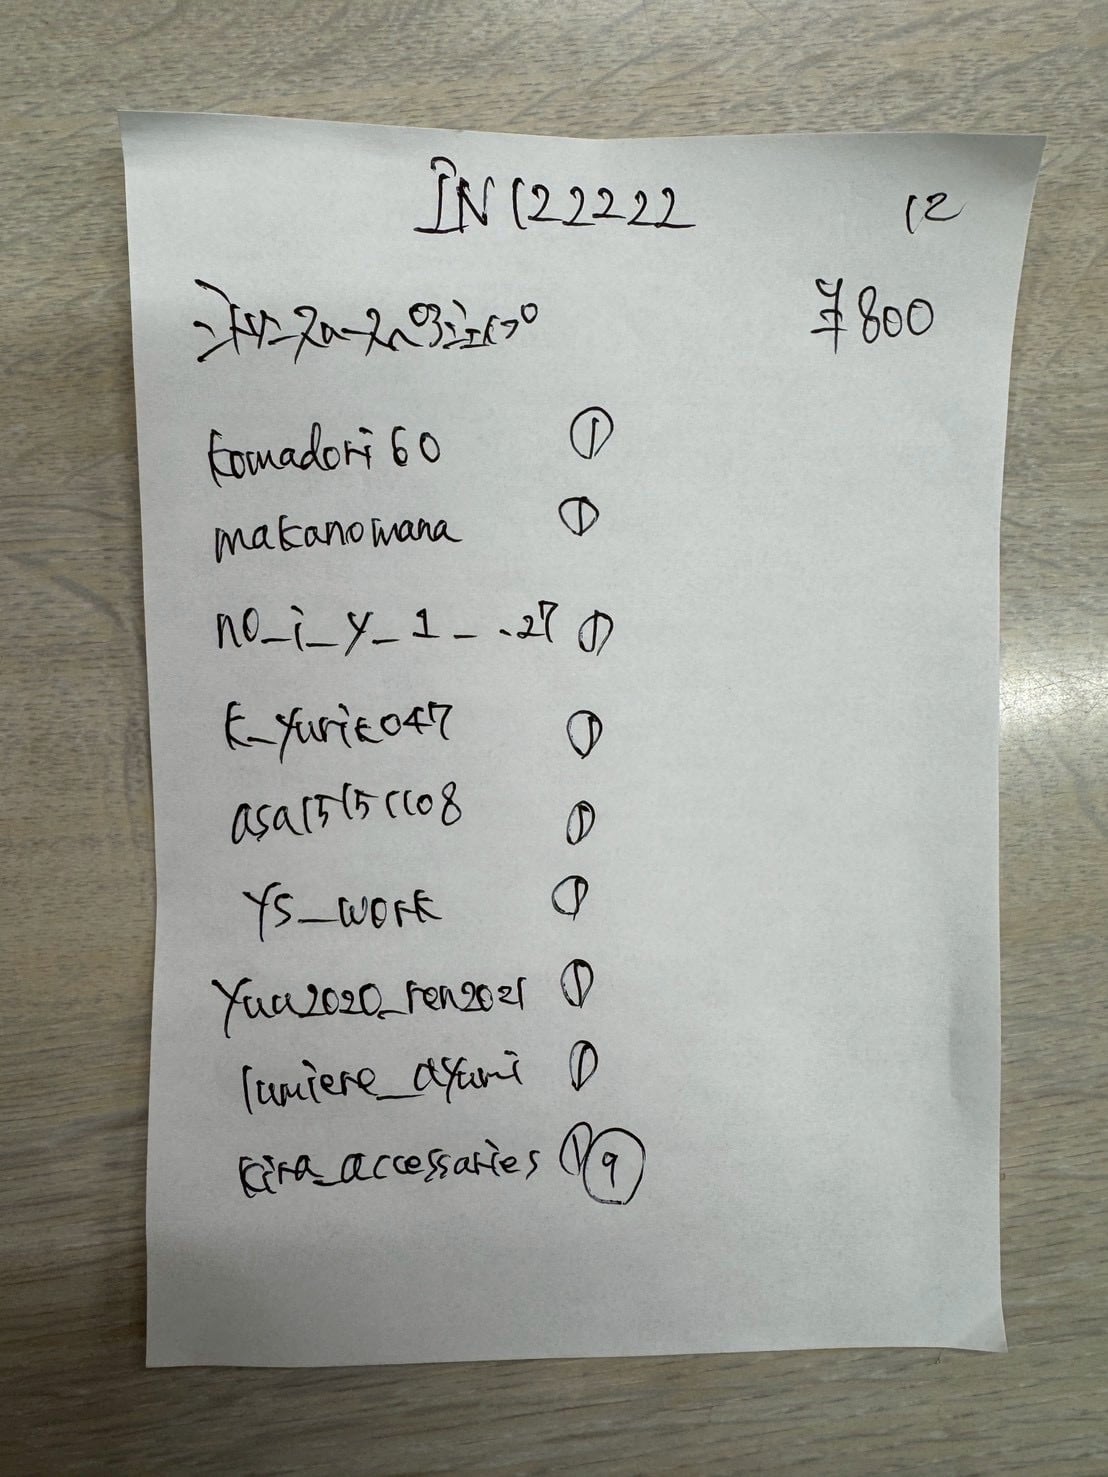 IN122222 12
¥800
komadori60 ①
makanowana ①
no_i_y_1_.27 ①
k_yuriko047 ①
asa15151108 ①
YS_work ①
Yuu2020_ren2021 ①
lumiere_ayumi ①
kira_accessaries ① ⑨